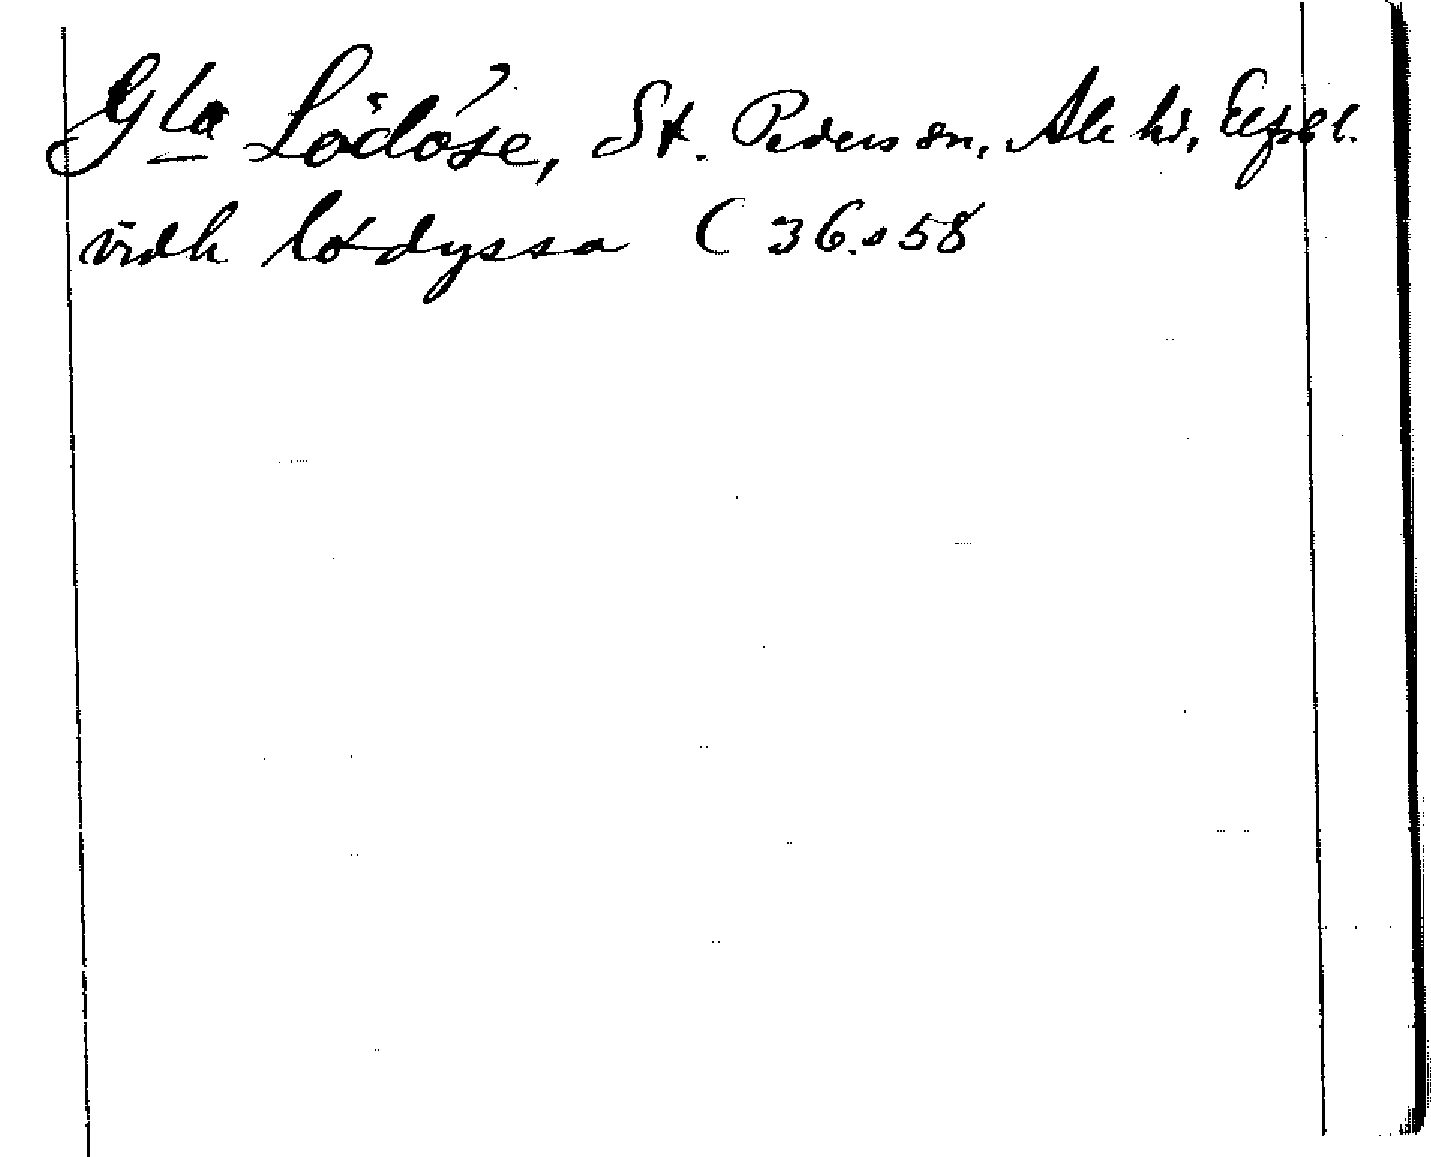 Gla Lödöse, St. Peders sn, Ale hd, Elfsbl.
vidh lødyssa C 36. s 58